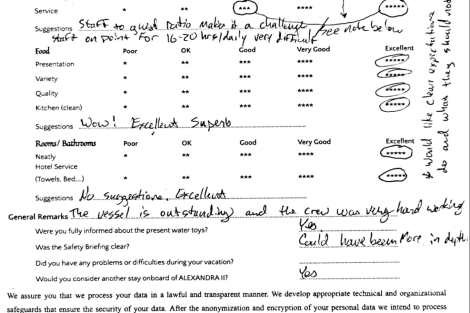 Service * ** *** **** *****
Suggestions Staff to guest ratio makes it a challenge see note below
staff on point for 16-20 hrs/daily very difficult
Food Poor OK Good Very Good Excellent
Presentation * ** *** **** *****
Variety * ** *** **** *****
Quality * ** *** **** *****
Kitchen (clean) * ** *** **** *****
Suggestions Wow! Excellent Superb
Rooms / Bathrooms Poor OK Good Very Good Excellent
Neatly * ** *** **** *****
Hotel Service
(Towels, Bed...) * ** *** **** *****
Suggestions No suggestions, Excellent
General Remarks The vessel is outstanding and the crew was very hard working
Were you fully informed about the present water toys? Yes
Was the Safety Briefing clear? Could have been more in depth.
Did you have any problems or difficulties during your vacation?
Would you consider another stay onboard of ALEXANDRA II? Yes
We assure you that we process your data in a lawful and transparent manner. We develop appropriate technical and organizational
safeguards that ensure the security of your data. After the anonymization and encryption of your personal data we intend to process
* Would like clear expectations
do and when they should not